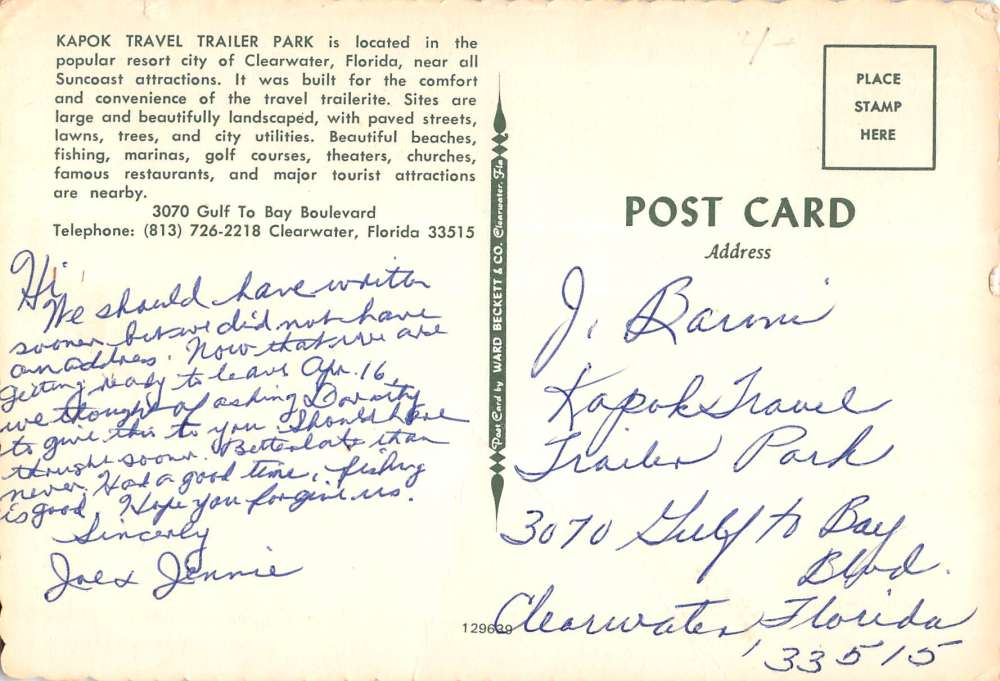 KAPOK TRAVEL TRAILER PARK is located in the
popular resort city of Clearwater, Florida, near all
Suncoast attractions. It was built for the comfort
and convenience of the travel trailerite. Sites are
large and beautifully landscaped, with paved streets,
lawns, trees, and city utilities. Beautiful beaches,
fishing, marinas, golf courses, theaters, churches,
famous restaurants, and major tourist attractions
are nearby.
3070 Gulf To Bay Boulevard
Telephone: (813) 726-2218 Clearwater, Florida 33515
Hi
We should have written
sooner but we did not have
an address. Now that we are
getting ready to leave Apr. 16
we thought of asking Dorothy
to give this to you. Should have
thought sooner. Better late than
never. Had a good time, fishing
is good. Hope you forgive us.
Sincerely
Joe & Jennie
Post Card by WARD BECKETT & CO. Clearwater, Fla
129639
PLACE
STAMP
HERE
POST CARD
Address
J. Baroni
Kapok Travel
Trailer Park
3070 Gulf to Bay
Blvd.
Clearwater, Florida
33515